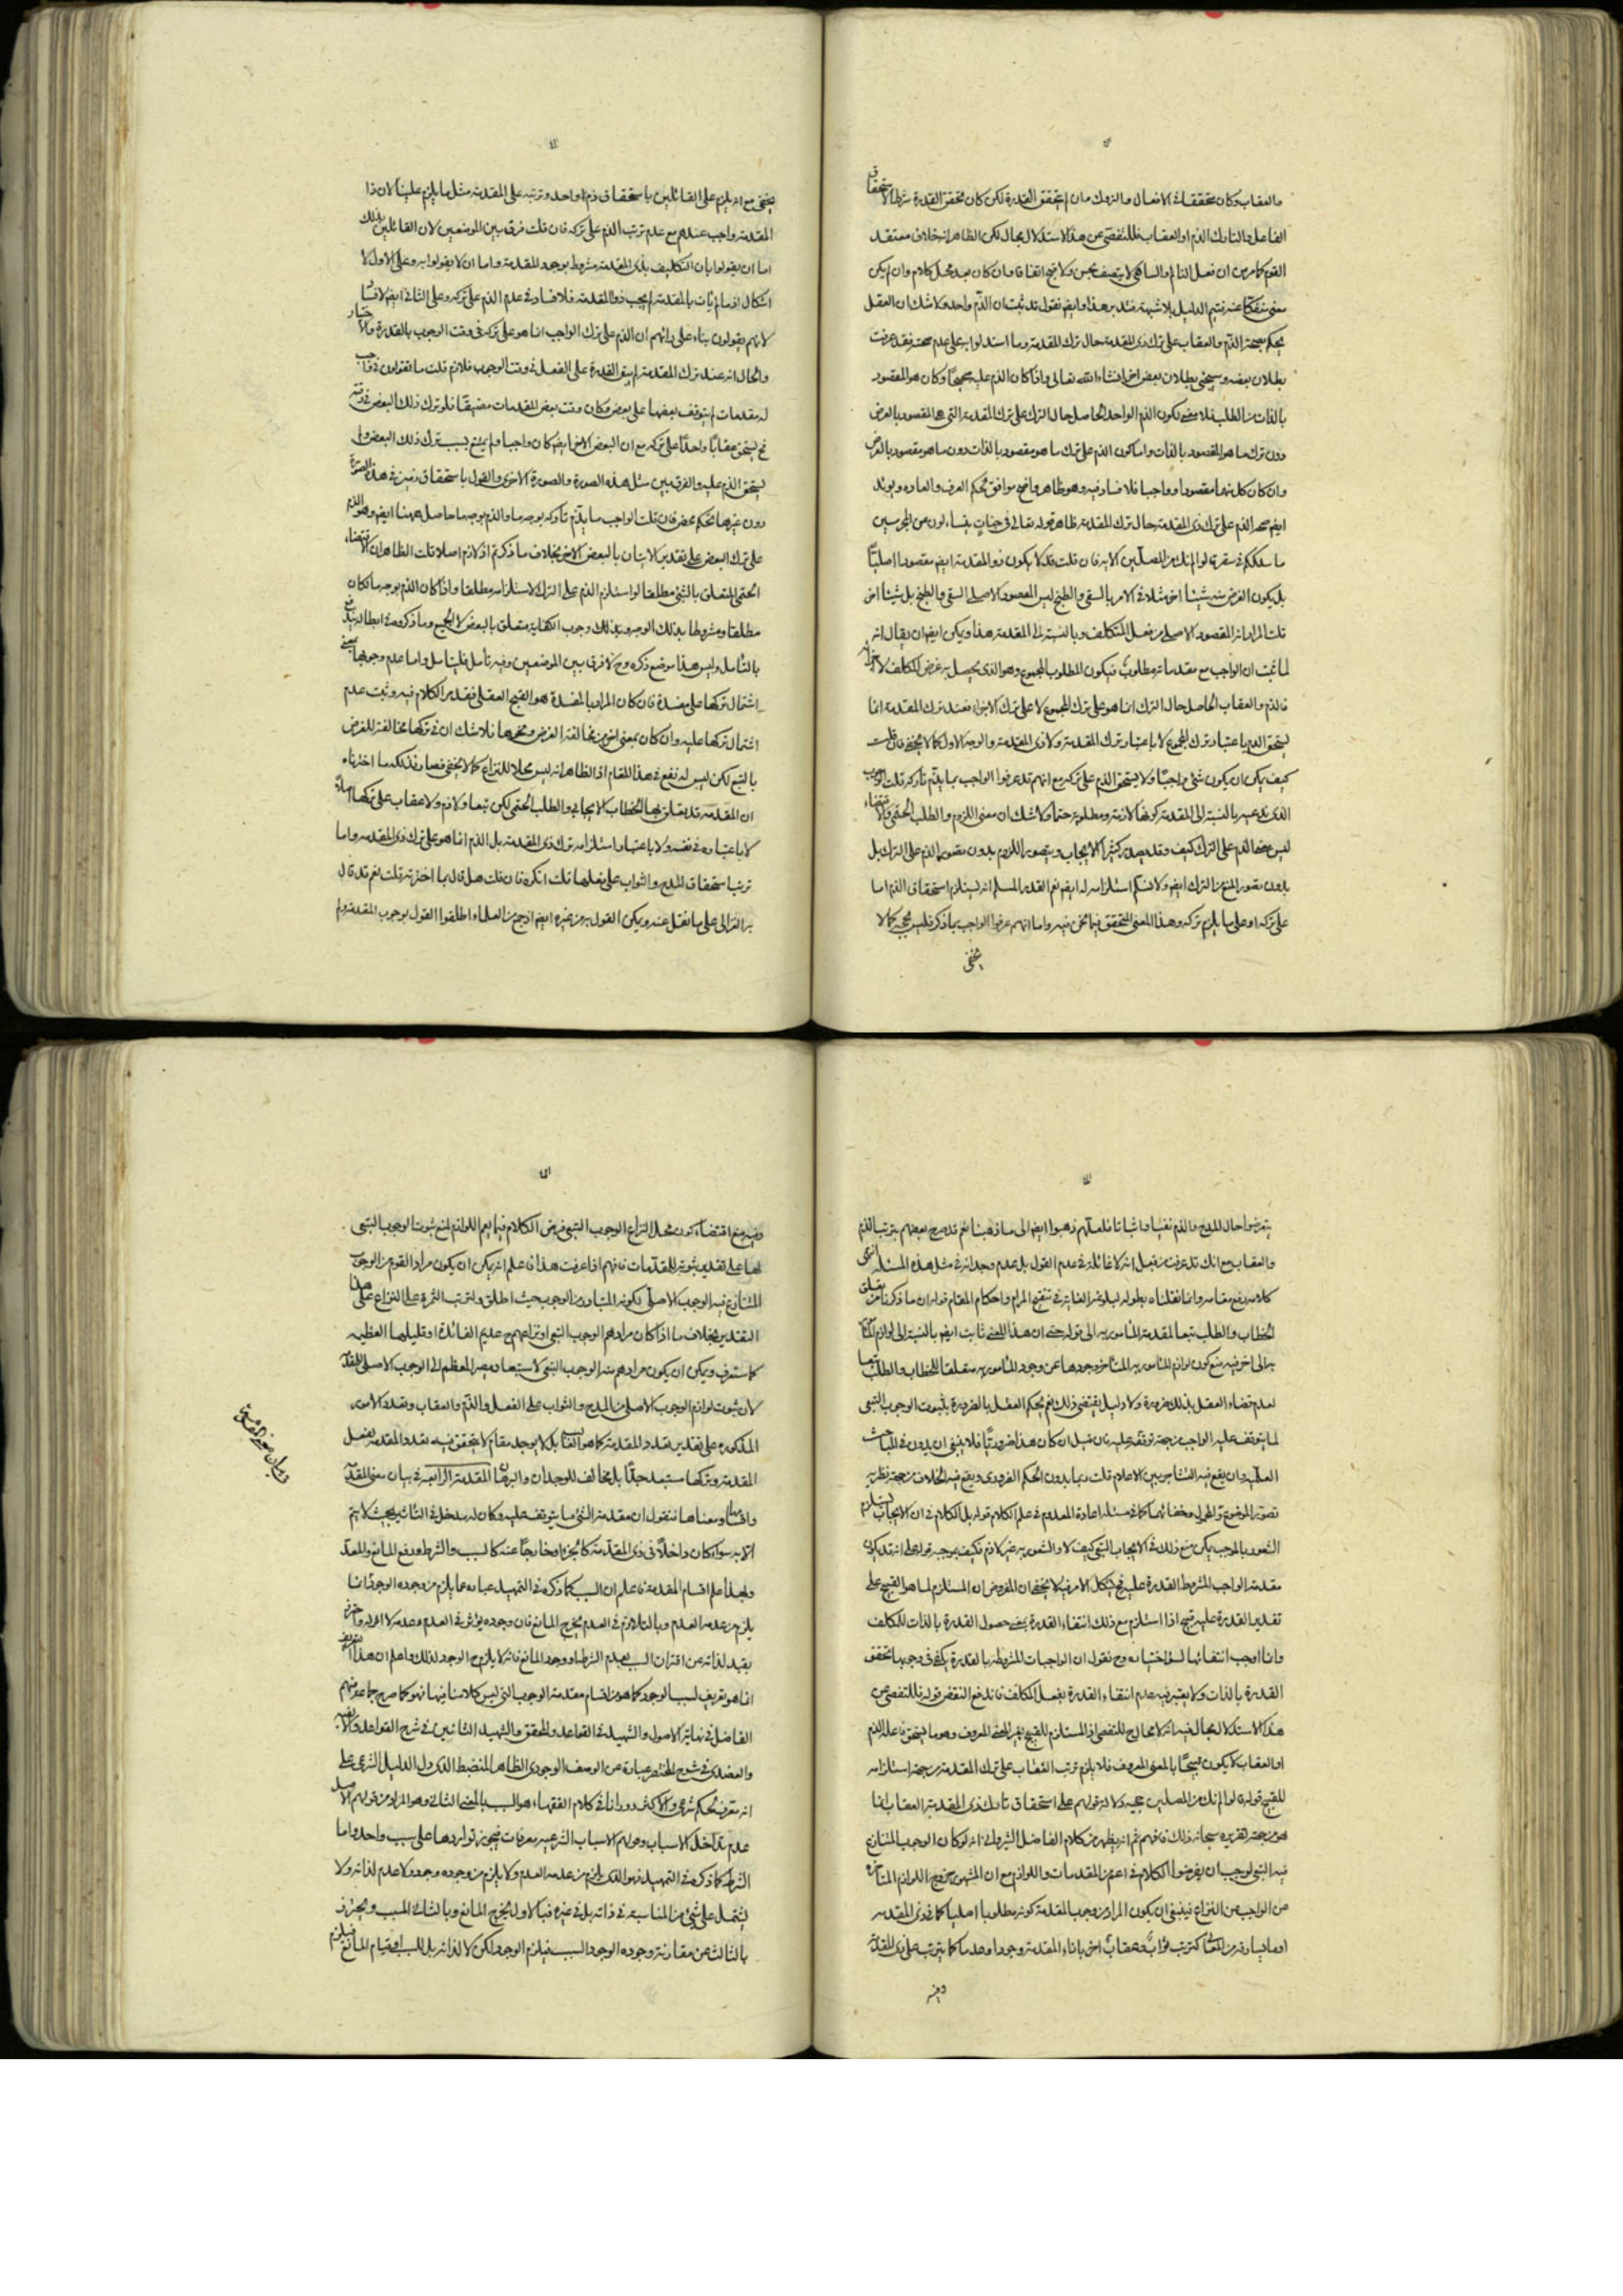 والعقاب وكان تحققهما في الافعال والتروك وان لم يتحقق القدرة لكن كان تحقق القدرة شرطا لاستحقاق
الفاعل والتارك الذم او العقاب فللتفصي عن هذا الاستدلال مجال لكن الظاهر انه خلاف معتقد
القوم كما مر من ان فعل النائم والساهي لا يتصف بحسن ولا قبح اتفاقا وان كان بعد محل كلام وان لم يكن
معنى منفكا عنه فتم الدليل بلا شبهة فتدبر هذا وايضا نقول قد ثبت ان الذم واحد ولا شك ان العقل
يحكم بصحة الذم والعقاب على ترك ذي المقدمة حال ترك المقدمة وما استدلوا به على عدم صحته فقد عرفت
بطلان بعضه وسيجئ بطلان بعض اخر انشاء الله تعالى واذا كان الذم عليه صحيحا وكان هو المقصود
بالذات من الطلب فلا معنى لكون الذم الواحد الحاصل حال الترك على ترك المقدمة التي هي المقصود بالعرض
دون ترك ما هو المقصود بالذات واما كون الذم على ترك ما هو مقصود بالذات دون ما هو مقصود بالعرض
وان كان كل منهما مقصودا وواجبا فلا فساد فيه وهو ظاهر واضح موافق لحكم العرف والعادة ويؤيد
ايضا صحة الذم على ترك ذي المقدمة حال ترك المقدمة ظاهر قوله تعالى في جنات يتساءلون عن المجرمين
ما سلككم في سقر قالوا لم نك من المصلين الاية فان قلت قد لا يكون ذو المقدمة ايضا مقصودا اصليا
بل يكون الغرض منه شيئا اخر مثلا في الامر بالسقي والطبخ ليس المقصود الاصلي السقي والطبخ بل شيئا اخر
قلت المراد انه المقصود الاصلي من فعل المكلف وبالنسبة الى المقدمة هذا ويمكن ايضا ان يقال انه
لما ثبت ان الواجب مع مقدماته مطلوب فيكون المطلوب المجموع وهو الذي يحصل به غرض المكلف لا الاجزاء
فالذم والعقاب الحاصل حال الترك انما هو على ترك المجموع لا على ترك الاجزاء فعند ترك المقدمة انما
يستحق الذم باعتبار ترك المجموع لا باعتبار ترك المقدمة ولا ذي المقدمة والوجه الاول كما لا يخفى فان قلت
كيف يمكن ان يكون شئ واجبا ولا يستحق الذم على تركه مع انهم قد عرفوا الواجب بما يذم تاركه قلت الوجوب
الذي ندعيه بالنسبة الى المقدمة كونها لازمة ومطلوبة حتما ولا شك ان معنى اللزوم والطلب الحتمي والاقتضاء
ليس معنى الذم على الترك كيف وقد يصدر كثيرا الايجاب ويتصور اللزوم بدون تصور الذم على الترك بل
بدون تصور المنع من الترك ايضا ولا نسلم استلزامه له ايضا نعم القدر المسلم انه يستلزم استحقاق الذم اما
على تركه او على ما يلزم تركه وهذا المعنى متحقق فيما نحن فيه واما انهم عرفوا الواجب بما ذكر فليس بحجة كما لا
يخفى
يخفى مع انه يلزم على القائلين باستحقاق ذم واحد وترتبه على المقدمة مثل ما يلزم علينا لان ذا
المقدمة واجب عندهم مع عدم ترتب الذم على تركه فان قلت فرق بين الموضعين لان القائلين بذلك
اما ان يقولوا بان التكليف بذي المقدمة مشروط بوجود المقدمة واما ان لا يقولوا به وعلى الاول لا
اشكال اذ ما لم يأت بالمقدمة لم يجب ذو المقدمة فلا فساد في عدم الذم على تركه وعلى الثاني ايضا لا فساد
لانهم يقولون بناء على رأيهم ان الذم على ترك الواجب انما هو على تركه في وقت الوجوب بالقدرة والاختيار
والحال انه عند ترك المقدمة لم يبق القدرة على الفعل في وقت الوجوب فلا ذم قلت ما تقولون في واجب
له مقدمات لم يتوقف بعضها على بعض وكان وقت بعض المقدمات مضيقا فلو ترك ذلك البعض في وقته
فح يستحق عقابا واحدا على تركه مع ان البعض الاخر ايضا كان واجبا ولم يمتنع بسبب ترك ذلك البعض ولم
يستحق الذم عليه والفرق بين مثل هذه الصورة والصورة الاخرى والقول باستحقاق ذمين في هذه الصورة
دون غيرها تحكم محض فان قلت الواجب ما يذم تاركه بوجه ما والذم بوجه ما حاصل ههنا ايضا وهو الذم
على ترك البعض على تقدير الاتيان بالبعض الاخر بخلاف ما ذكرتم اذ لا ذم اصلا قلت الظاهر ان الاقتضاء
الحتمي المتعلق بالشئ مطلقا لو استلزم الذم على الترك لاستلزمه مطلقا واذا كان الذم بوجه ما فكان
مطلقا ومشروطا بذلك الوجه وبذلك وجوب الكفاية متعلق بالبعض لا الجميع وما ذكروه في ابطاله
بالتأمل وليس هذا موضع ذكره وح لا فرق بين الموضعين وفيه تأمل فليتأمل واما عدم وجوبها بمعنى
اشتمال تركها على مفسدة فان كان المراد بالمفسدة هو القبح العقلي فقد مر الكلام فيه وثبت عدم
اشتمال تركها عليه وان كان بمعنى اخر من مخالفة الغرض ونحوها فلا شك ان في تركها مخالفة للغرض
بالتبع لكن ليس له نفع في هذا المقام اذ الظاهر انه ليس محلا للنزاع كما لا يخفى فصار فذلكة ما اخترناه
ان المقدمة قد يتعلق بها الخطاب الايجابي والطلب الحتمي لكن تبعا ولا ذم ولا عقاب على تركها اصلا
لا باعتباره في نفسه ولا باعتبار استلزامه ترك ذي المقدمة بل الذم انما هو على ترك ذي المقدمة واما
ترتب استحقاق المدح والثواب على فعلها فلا تنكره فان قلت هل قال بما اخترته قلت نعم قد قال
به الغزالي على ما نقل عنه ويمكن القول به من غيره ايضا اذ جمع من العلماء اطلقوا القول بوجوب المقدمة ولم
يتعرضوا حال المدح والذم نفيا واثباتا فلعلهم ذهبوا ايضا الى ما ذهبنا نعم قد صرح بعضهم بترتب الذم
والعقاب مع انك قد عرفت من قبل انه لا غائلة في عدم القول بل عدم وجدانه في مثل هذه المسئلة انتهى
كلامه رفع مقامه وانما نقلناه بطوله لبلوغه الغاية في تنقيح المرام واحكام المقام قوله ان ما ذكرنا من تعلق
الخطاب والطلب تبعا لمقدمة المأمور به الى قوله حتى ان هذا المعنى ثابت ايضا بالنسبة الى لوازم المأمور
به الى اخره فيه منع كون لوازم المأمور به المتأخر وجودها عن وجود المأمور به متعلقا للخطاب والطلب تبعا
لعدم قضاء العقل بذلك ضرورة ولا دليل يقتضي ذلك نعم يحكم العقل بالضرورة بثبوت الوجوب التبعي
لما يتوقف عليه الواجب من جهة توقفه عليه فان قيل ان كان هذا ضروريا فلا ينبغي ان يدون في المباحث
العلمية وان يقع فيه التشاجر بين الاعلام قلت ربما يدون الحكم الضروري ويقع فيه الخلاف من جهة نظرية
تصور الموضوع والمحمول وخفائهما كما في مسئلة اعادة المعدوم في علم الكلام قوله بل الكلام في ان الايجاب يستلزم
الشعور بالموجب يمكن منع ذلك في الايجاب التبعي كيف لا والشعور به غير لازم فكيف بوجه قوله على انه قد يكون
مقدمة الواجب المشروط القدرة عليه فح يشكل الامر فيه لا يخفى ان المفروض ان المستلزم لما هو القبيح على
تقدير القدرة عليه قبيح اذا استلزم مع ذلك انتفاء القدرة بمعنى حصول القدرة بالذات للمكلف
وانما اوجب انتفائها لسوء اختياره وح نقول ان الواجبات المشروطة بالقدرة يكفي في وجوبها تحقق
القدرة بالذات ولا يعتبر فيه عدم انتفاء القدرة بفعل المكلف فاندفع النقض قوله فللتفصي عن
هذا الاستدلال مجال فيه انه لا مجال ح للتفصي اذ المستلزم للقبيح بغير المعنى المعروف وهو ما يستحق فاعله الذم
او العقاب لا يكون قبيحا بالمعنى المعروف فلا يلزم ترتب العقاب على ترك المقدمة من جهة استلزامه
للقبيح قوله قالوا لم نك من المصلين حجية دلالة قولهم على استحقاق تارك ذي المقدمة العقاب انما
هو من جهة تقريره سبحانه ذلك فافهم ثم انه يظهر من كلام الفاضل الشيرواني انه لو كان الوجوب المتنازع
فيه التبعي لوجب ان يفرضوا الكلام في اعم من المقدمات واللوازم مع ان المشهور خروج اللوازم المتأخرة
عن الواجب عن النزاع فينبغي ان يكون المراد من وجوب المقدمة كونه مطلوبا اصليا كما في ذي المقدمة
او ما يساوقه من المعاني كترتب ثواب وعقاب اخر بازاء المقدمة وجودا وعدما كما يترتب على ذي المقدمة
وفيه
وفيه منع اقتضاء كون محل النزاع الوجوب التبعي فرض الكلام فيما يعم اللوازم لمنع ثبوت الوجوب التبعي
لها على تقدير ثبوته للمقدمات فافهم اذا عرفت هذا فاعلم انه يمكن ان يكون مراد القوم من الوجوب
المتنازع فيه الوجوب الاصلي لكونه المتبادر من الوجوب حيث اطلق ولترتب الثمرة على النزاع على هذا
التقدير بخلاف ما اذا كان مرادهم الوجوب التبعي اذ نزاعهم ح عديم الفائدة او قليلها العظيمة
كما ستعرف ويمكن ان يكون مرادهم منه الوجوب التبعي لاستبعاد مصير المعظم الى الوجوب الاصلي للمقدمة
لان ثبوت لوازم الوجوب الاصلي من المدح والثواب على الفعل والذم والعقاب وتعدد الامور
المذكورة على تقدير تعدد المقدمة كما هو الغالب بل لا يوجد مقام لا يتحقق فيه تعدد المقدمة بفعل
المقدمة وتركها مستبعد جدا بل مخالف للوجدان والبرهان المقدمة الرابعة في بيان معنى المقدمة
واقسامها ومعناها فنقول ان مقدمة الشئ ما يتوقف عليه وكان له مدخل في التأثير بحيث لا يتم
الا به سواء كان داخلا في ذي المقدمة كالجزء او خارجا عنه كالسبب والشرط ورفع المانع والمعد
وبهذا علم اقسام المقدمة فاعلم ان السبب كما ذكره في التمهيد عبارة عما يلزم من وجوده الوجود
يلزم من عدمه العدم وبالتلازم في العدم يخرج المانع فان وجوده يؤثر في العدم وعدمه لا اثر له واحترز
بقيد لذاته عن اقتران السبب بعدم الشرط او وجود المانع فانه لا يلزم ح الوجود لذلك واعلم ان هذا التعريف
انما هو تعريف لسبب الوجود كما هو من اقسام مقدمة الوجوب التي ليس كلامنا فيها فهو كما صرح جماعة منهم
الفاضل في نهاية الاصول والشهيد في القواعد والمحقق والشهيد الثانيين في شرح القواعد والالفية
والعضدي في شرح المختصر عبارة عن الوصف الوجودي الظاهر المنضبط الذي دل الدليل الشرعي على
انه معرف لحكم شرعي والاكثر دورانا في كلام الفقهاء هو السبب بالمعنى الثاني وهو المراد من قولهم الاصل
عدم تداخل الاسباب وقولهم الاسباب الشرعية معرفات فيجوز تواردها على سبب واحد واما
الشرط كما ذكره في التمهيد فهو الذي يلزم من عدمه العدم ولا يلزم من وجوده وجود ولا عدم لذاته ولا
يشتمل على شئ من المناسبة في ذاته بل في غيره فبالاول يخرج المانع وبالثاني السبب ويحترز
بالثالث عن مقارنة وجوده الوجود السبب فيلزم الوجود لكن لا لذاته بل للسبب او قيام المانع فيلزم